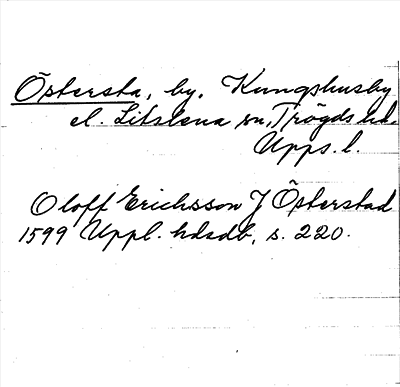 Östersta, by, Kungshusby
el. Litslena sn, Trögds hd.
Upps. l.
Oloff Erichsson J Österstad
1599 Uppl. hdsdb, s. 220.